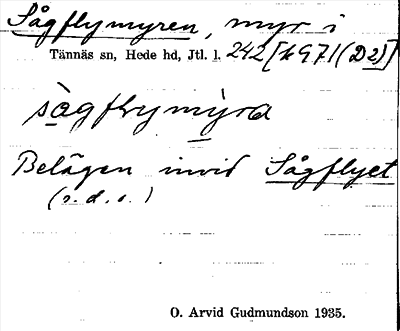 Sågflymyren, myr i
Tännäs sn, Hede hd, Jtl. l. 242 [k 971 (D2)]
sàgflymỳra
Belägen invid Sågflyet
(s.d.o.)
O. Arvid Gudmundson 1935.